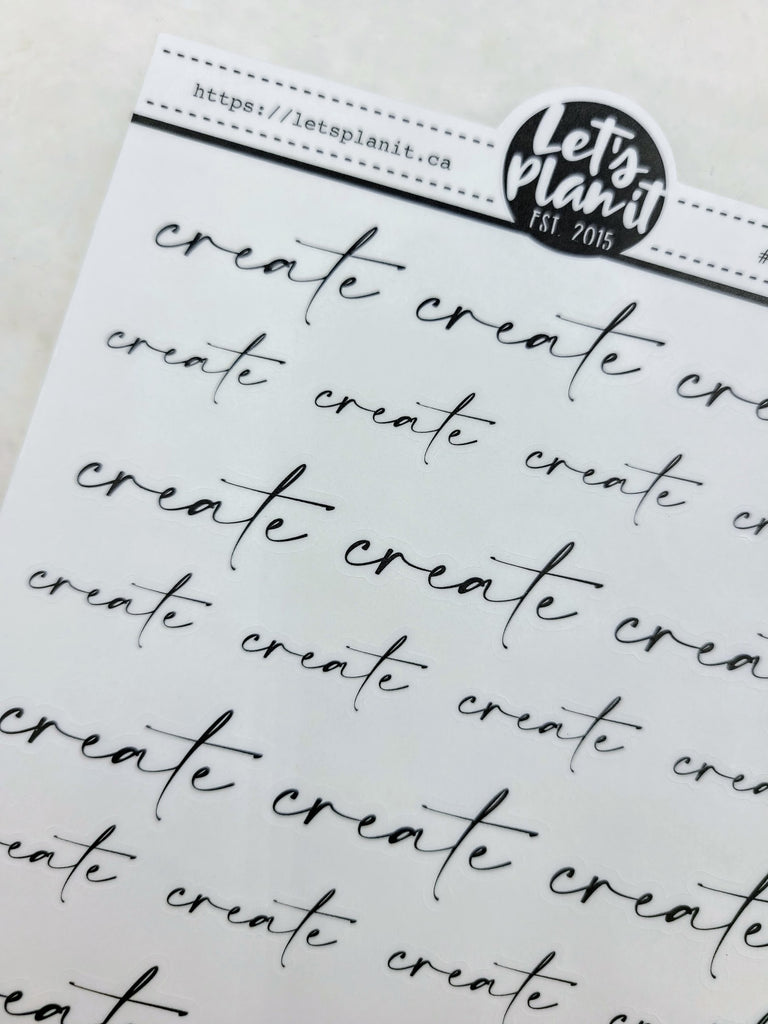 https://letsplanit.ca
Let's
plan it
EST. 2015
#
create create cre
create create create cr
create create crea
create create create crea
create create create
eate create create cr
eat